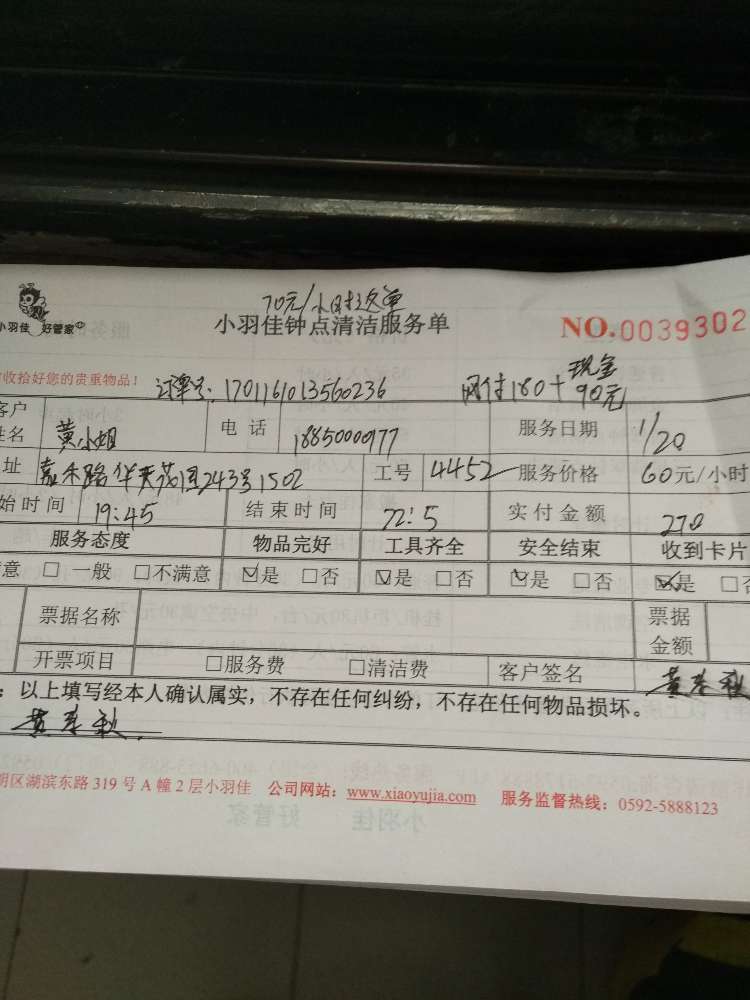 70元/小时送单
小羽佳 好管家
小羽佳钟点清洁服务单
NO.0039302
收拾好您的贵重物品！ 订单号：170116013560236 网付180+现金90元
客户姓名 黄小姐 电话 18850000977 服务日期 1/20
址 嘉禾路华天花园243号1502 工号 4452 服务价格 60元/小时
始时间 19:45 结束时间 22:5 实付金额 270
服务态度 物品完好 工具齐全 安全结束 收到卡片
意 □一般 □不满意 ☑是 □否 ☑是 □否 ☑是 □否 ☑是 □否
票据名称 票据金额
开票项目 □服务费 □清洁费 客户签名 黄春秋
：以上填写经本人确认属实，不存在任何纠纷，不存在任何物品损坏。
黄春秋
明区湖滨东路319号A幢2层小羽佳 公司网站：www.xiaoyujia.com 服务监督热线：0592-5888123